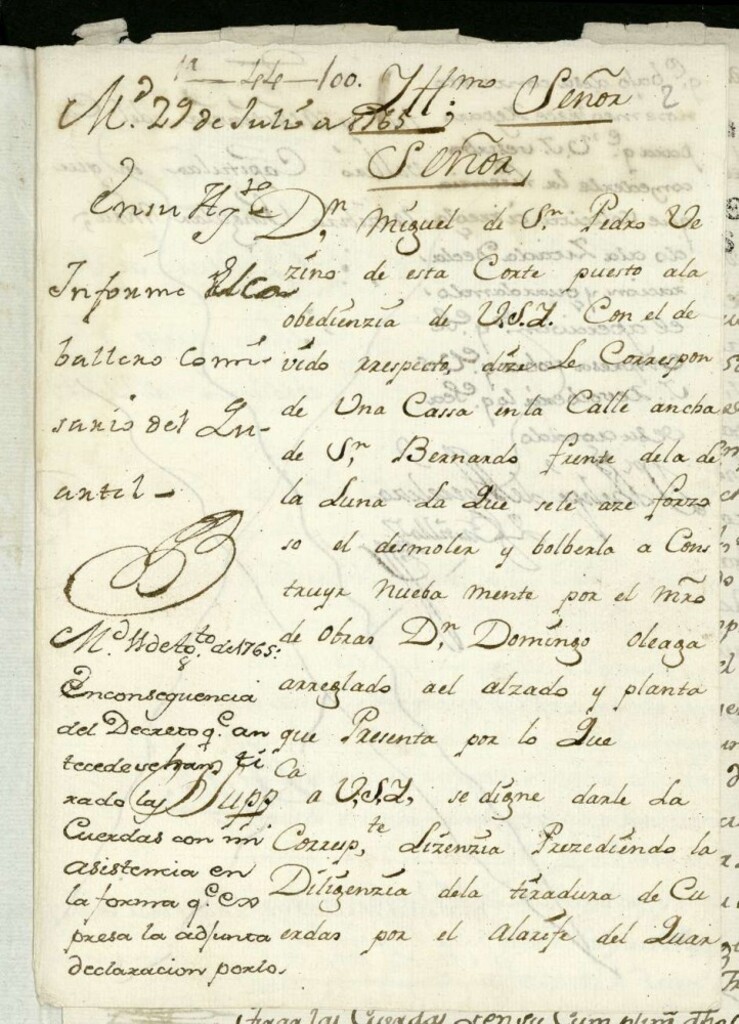 1ª — 44 — 100.
Yllmo. Señor
2
Md. 29 de Julio a 1765
Señor,
En su Ayto
Informe El Ca
ballero Comi-
sario del Qu-
artel —
Dn. Miguel de Sn. Pedro Ve
zino de esta Corte puesto ala
obedienzia de V.S.Y. Con el de
vido rrespecto, dize Le Correspon
de Una Cassa en la Calle ancha
de Sn. Bernardo frente dela de
la Luna La Que sele aze forzo
so el desmoler y bolberla a Cons
truyr Nueba mente por el Mro
de obras Dn. Domingo oleaga
arreglado ael alzado y planta
que Presenta por lo Que
Suppca
a V.S.Y. se digne darle La
Corresp,te Lizenzia Prezediendo la
Diligenzia dela tiradura de Cu
erdas por el Alarife del Quar
Md. 11 de Agto. de 1765:
En consequencia
del Decreto q.e an
tecede se han ti
rado las
Cuerdas con mi
asistencia en
la forma q.e ex
presa la adjunta
declaracion porlo.
haga las Cuerdas